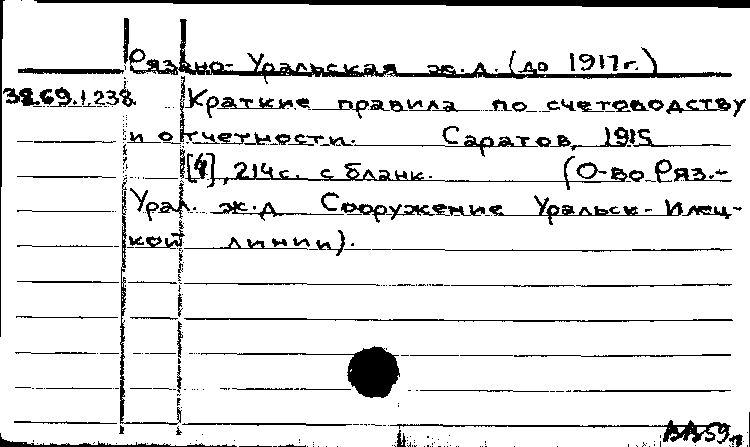 Рязано-Уральская ж.д. (до 1917г.)
38.69.1.238. Краткие правила по счетоводству
и отчетности. Саратов, 1915
[4], 214с. с бланк. (О-во Ряз.-
Урал. ж.д. Сооружение Уральск-Илец-
кой линии).